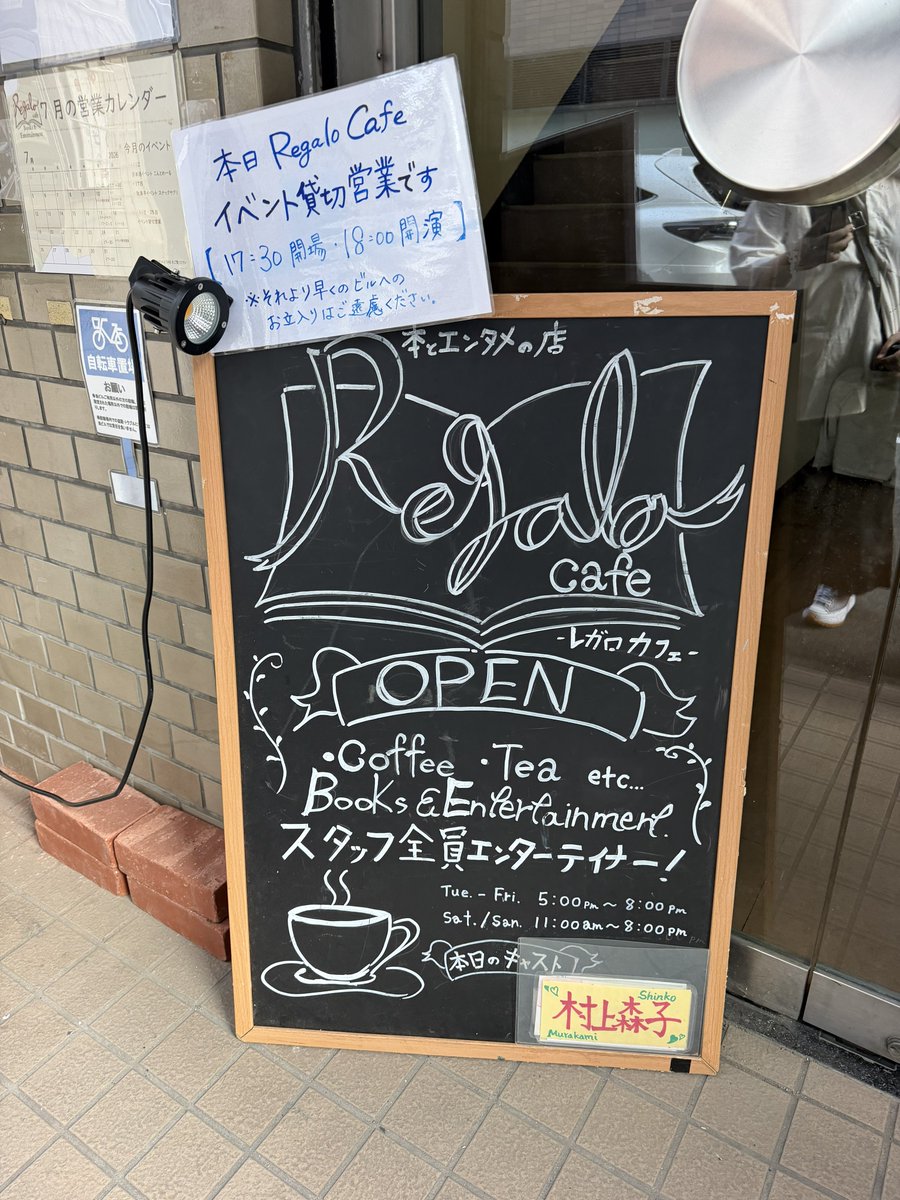 Regalo
7月の営業カレンダー
7月
2026
今月のイベント
本日 Regalo Cafe
イベント貸切営業です
[17:30 開場・18:00 開演]
※それより早くのビルへの
お立入りはご遠慮ください。
自転車置場
お願い
本とエンタメの店
Regalo
Cafe
-レガロ カフェ-
OPEN
・Coffee ・Tea etc...
Books & Entertainment.
スタッフ全員エンターテイナー!
Tue. - Fri. 5:00pm～8:00pm
Sat./San. 11:00am～8:00pm
本日のキャスト
Shinko
村上森子
Murakami